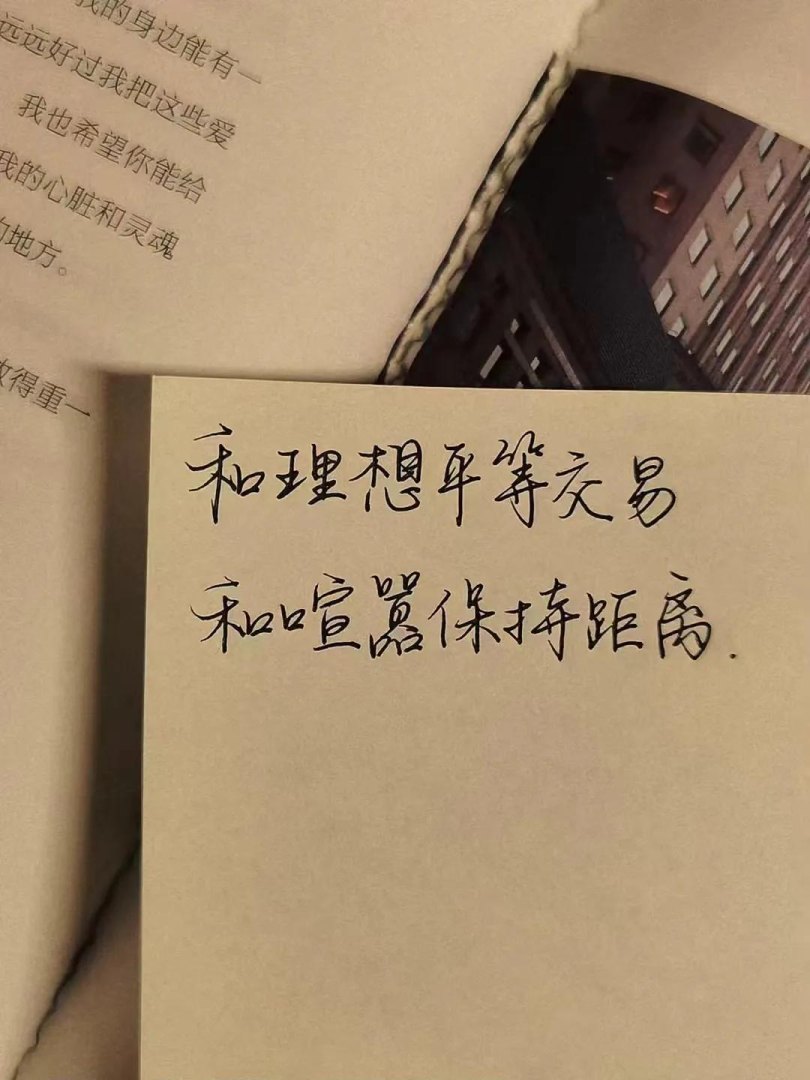 我的身边能有一
远远好过我把这些爱
我也希望你能给
我的心脏和灵魂
的地方。
得重一
和理想平等交易
和喧嚣保持距离.